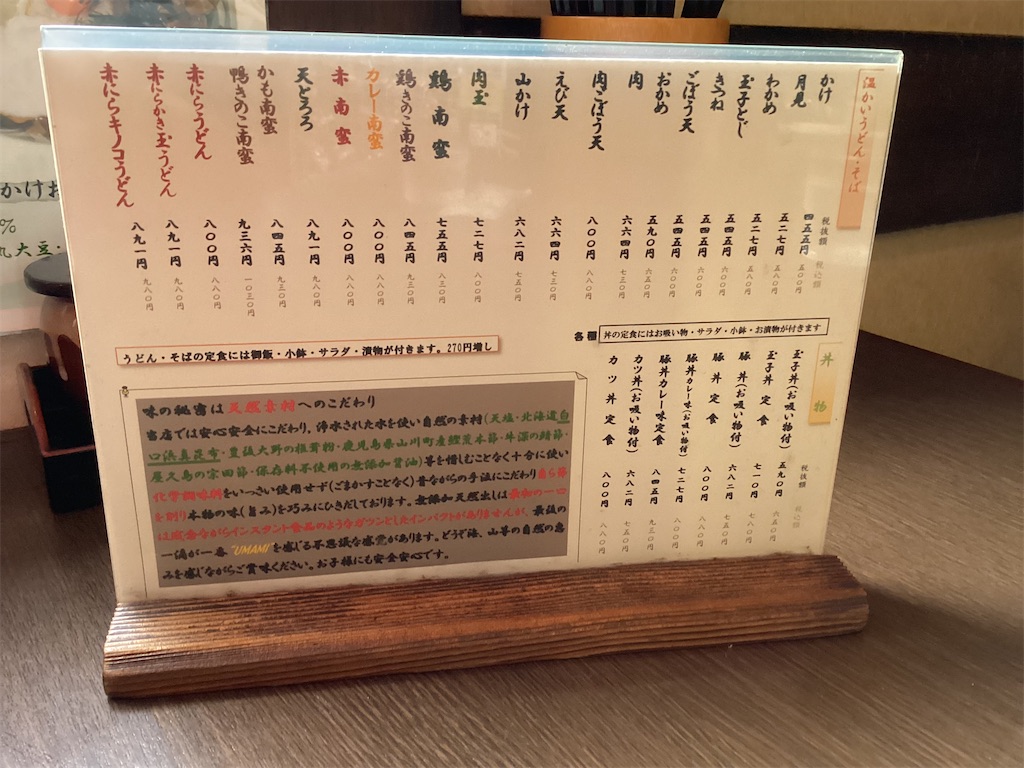 温かいうどん・そば
税抜額 税込額
かけ 四五五円 五〇〇円
月見 五二七円 五八〇円
わかめ 五二七円 五八〇円
玉子とじ 五四五円 六〇〇円
きつね 五四五円 六〇〇円
ごぼう天 五四五円 六〇〇円
おかめ 五九〇円 六五〇円
肉 六六四円 七三〇円
肉ごぼう天 八〇〇円 八八〇円
えび天 六六四円 七三〇円
山かけ 六八二円 七五〇円
肉玉 七二七円 八〇〇円
鶏南蛮 七五五円 八三〇円
鶏きのこ南蛮 八四五円 九三〇円
カレー南蛮 八〇〇円 八八〇円
赤南蛮 八〇〇円 八八〇円
天とろろ 八九一円 九八〇円
かも南蛮 八四五円 九三〇円
鴨きのこ南蛮 九三六円 一〇三〇円
赤にらうどん 八〇〇円 八八〇円
赤にらかき玉うどん 八九一円 九八〇円
赤にらキノコうどん 八九一円 九八〇円
各種 丼の定食にはお吸い物・サラダ・小鉢・お漬物が付きます
丼物
税抜額 税込額
玉子丼(お吸い物付) 五九〇円 六五〇円
玉子丼定食 七一〇円 七八〇円
豚丼(お吸い物付) 六八二円 七五〇円
豚丼定食 八〇〇円 八八〇円
豚丼カレー味(お吸い物付) 七二七円 八〇〇円
豚丼カレー味定食 八四五円 九三〇円
カツ丼(お吸い物付) 六八二円 七五〇円
カツ丼定食 八〇〇円 八八〇円
うどん・そばの定食には御飯・小鉢・サラダ・漬物が付きます。270円増し
味の秘密は天然素材へのこだわり
当店では安心安全にこだわり、浄水された水を使い自然の素材(天塩・北海道白
口浜真昆布・豊後大野の椎茸物・鹿児島県山川町産鰹荒本節・牛深の鯖節・
屋久島の宗田節・保存料不使用の無添加醤油)等を惜しむことなく十分に使い
化学調味料をいっさい使用せず(ごまかすことなく)昔ながらの手法にこだわり自ら節
を削り本物の味(旨み)を巧みにひきだしております。無添加天然出しは最初の一口
は残念ながらインスタント食品のようなガツンとしたインパクトがありませんが、最後の
一滴が一番"UMAMI"を感じる不思議な感覚があります。どうぞ海、山等の自然の恵
みを感じながらご賞味ください。お子様にも安全安心です。
かけお
%
丸大豆・